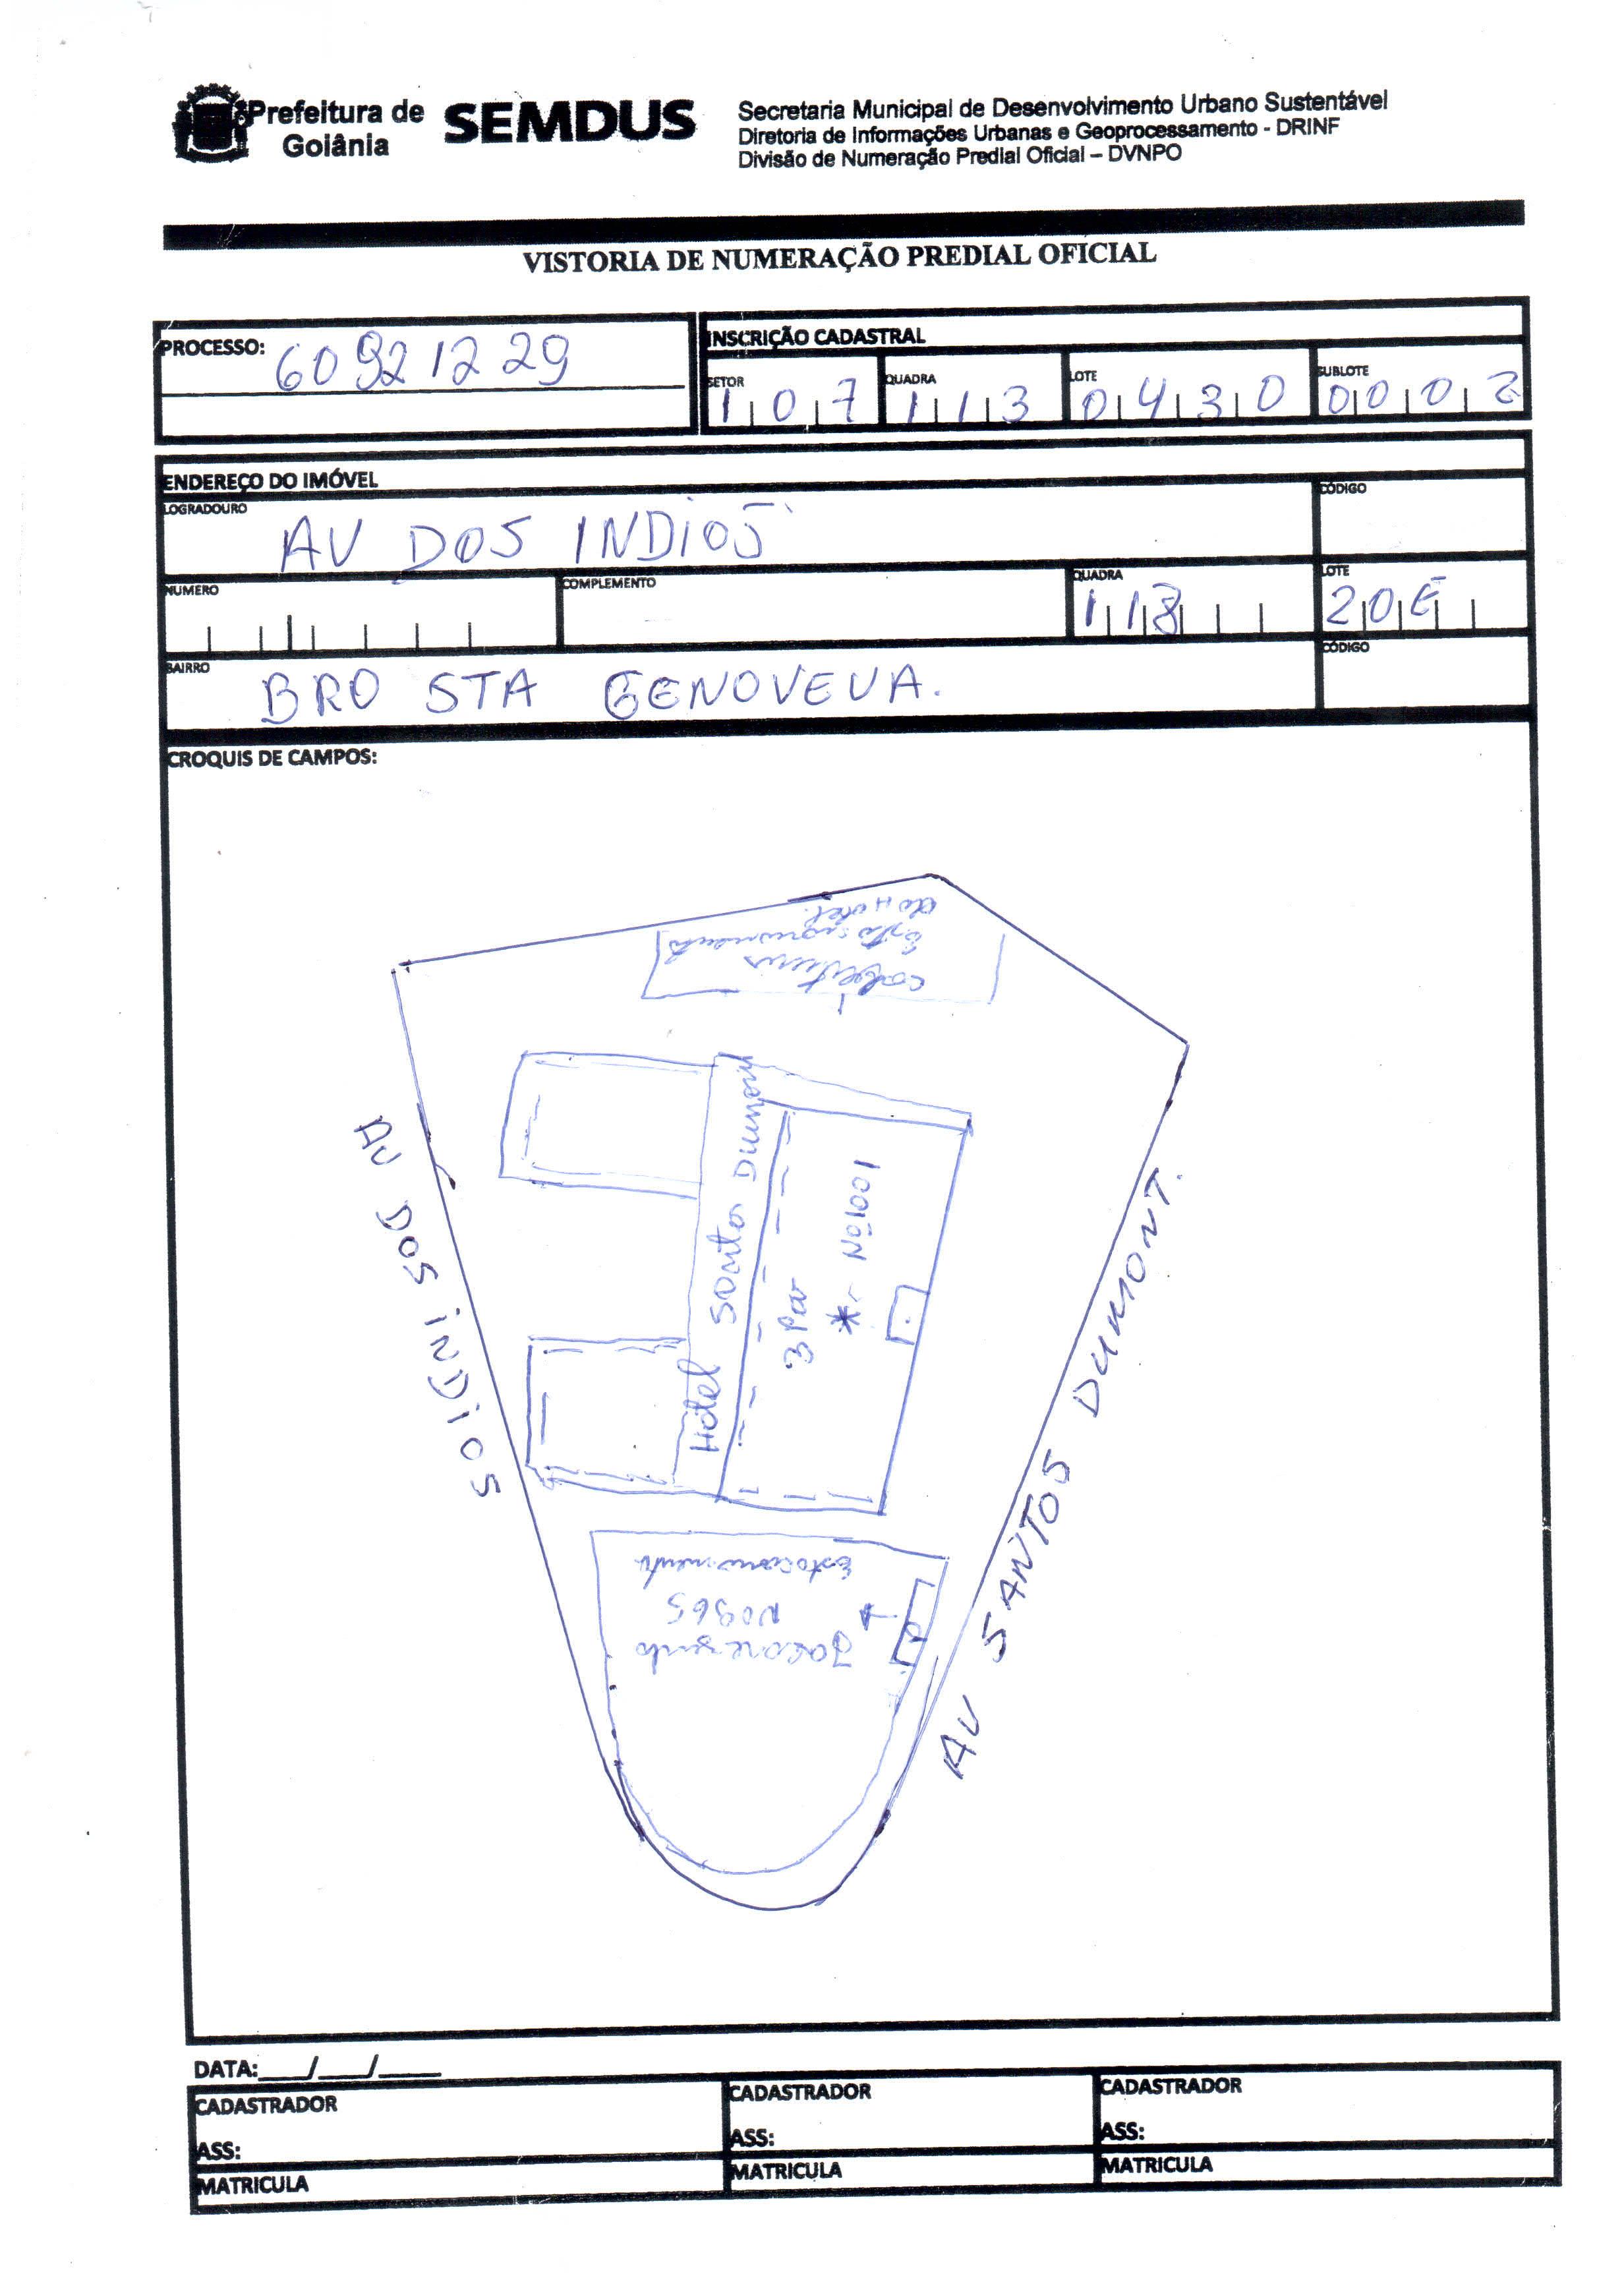 Prefeitura de
Goiânia
SEMDUS
Secretaria Municipal de Desenvolvimento Urbano Sustentável
Diretoria de Informações Urbanas e Geoprocessamento - DRINF
Divisão de Numeração Predial Oficial – DVNPO
VISTORIA DE NUMERAÇÃO PREDIAL OFICIAL
PROCESSO: 60921229
INSCRIÇÃO CADASTRAL
SETOR QUADRA LOTE SUBLOTE
107 113 0430 0002
ENDEREÇO DO IMÓVEL
LOGRADOURO CÓDIGO
AV DOS INDIOS
NUMERO COMPLEMENTO QUADRA LOTE
113 20E
BAIRRO CÓDIGO
BRO STA GENOVEVA.
CROQUIS DE CAMPOS:
do Hotel.
AV DOS INDIOS
Hotel Santos Dumont
3 Pav
* - Nº 1001
AV SANTOS DUMONT.
Estacionamento
Nº 965
DATA:___/___/____
CADASTRADOR CADASTRADOR CADASTRADOR
ASS: ASS: ASS:
MATRICULA MATRICULA MATRICULA